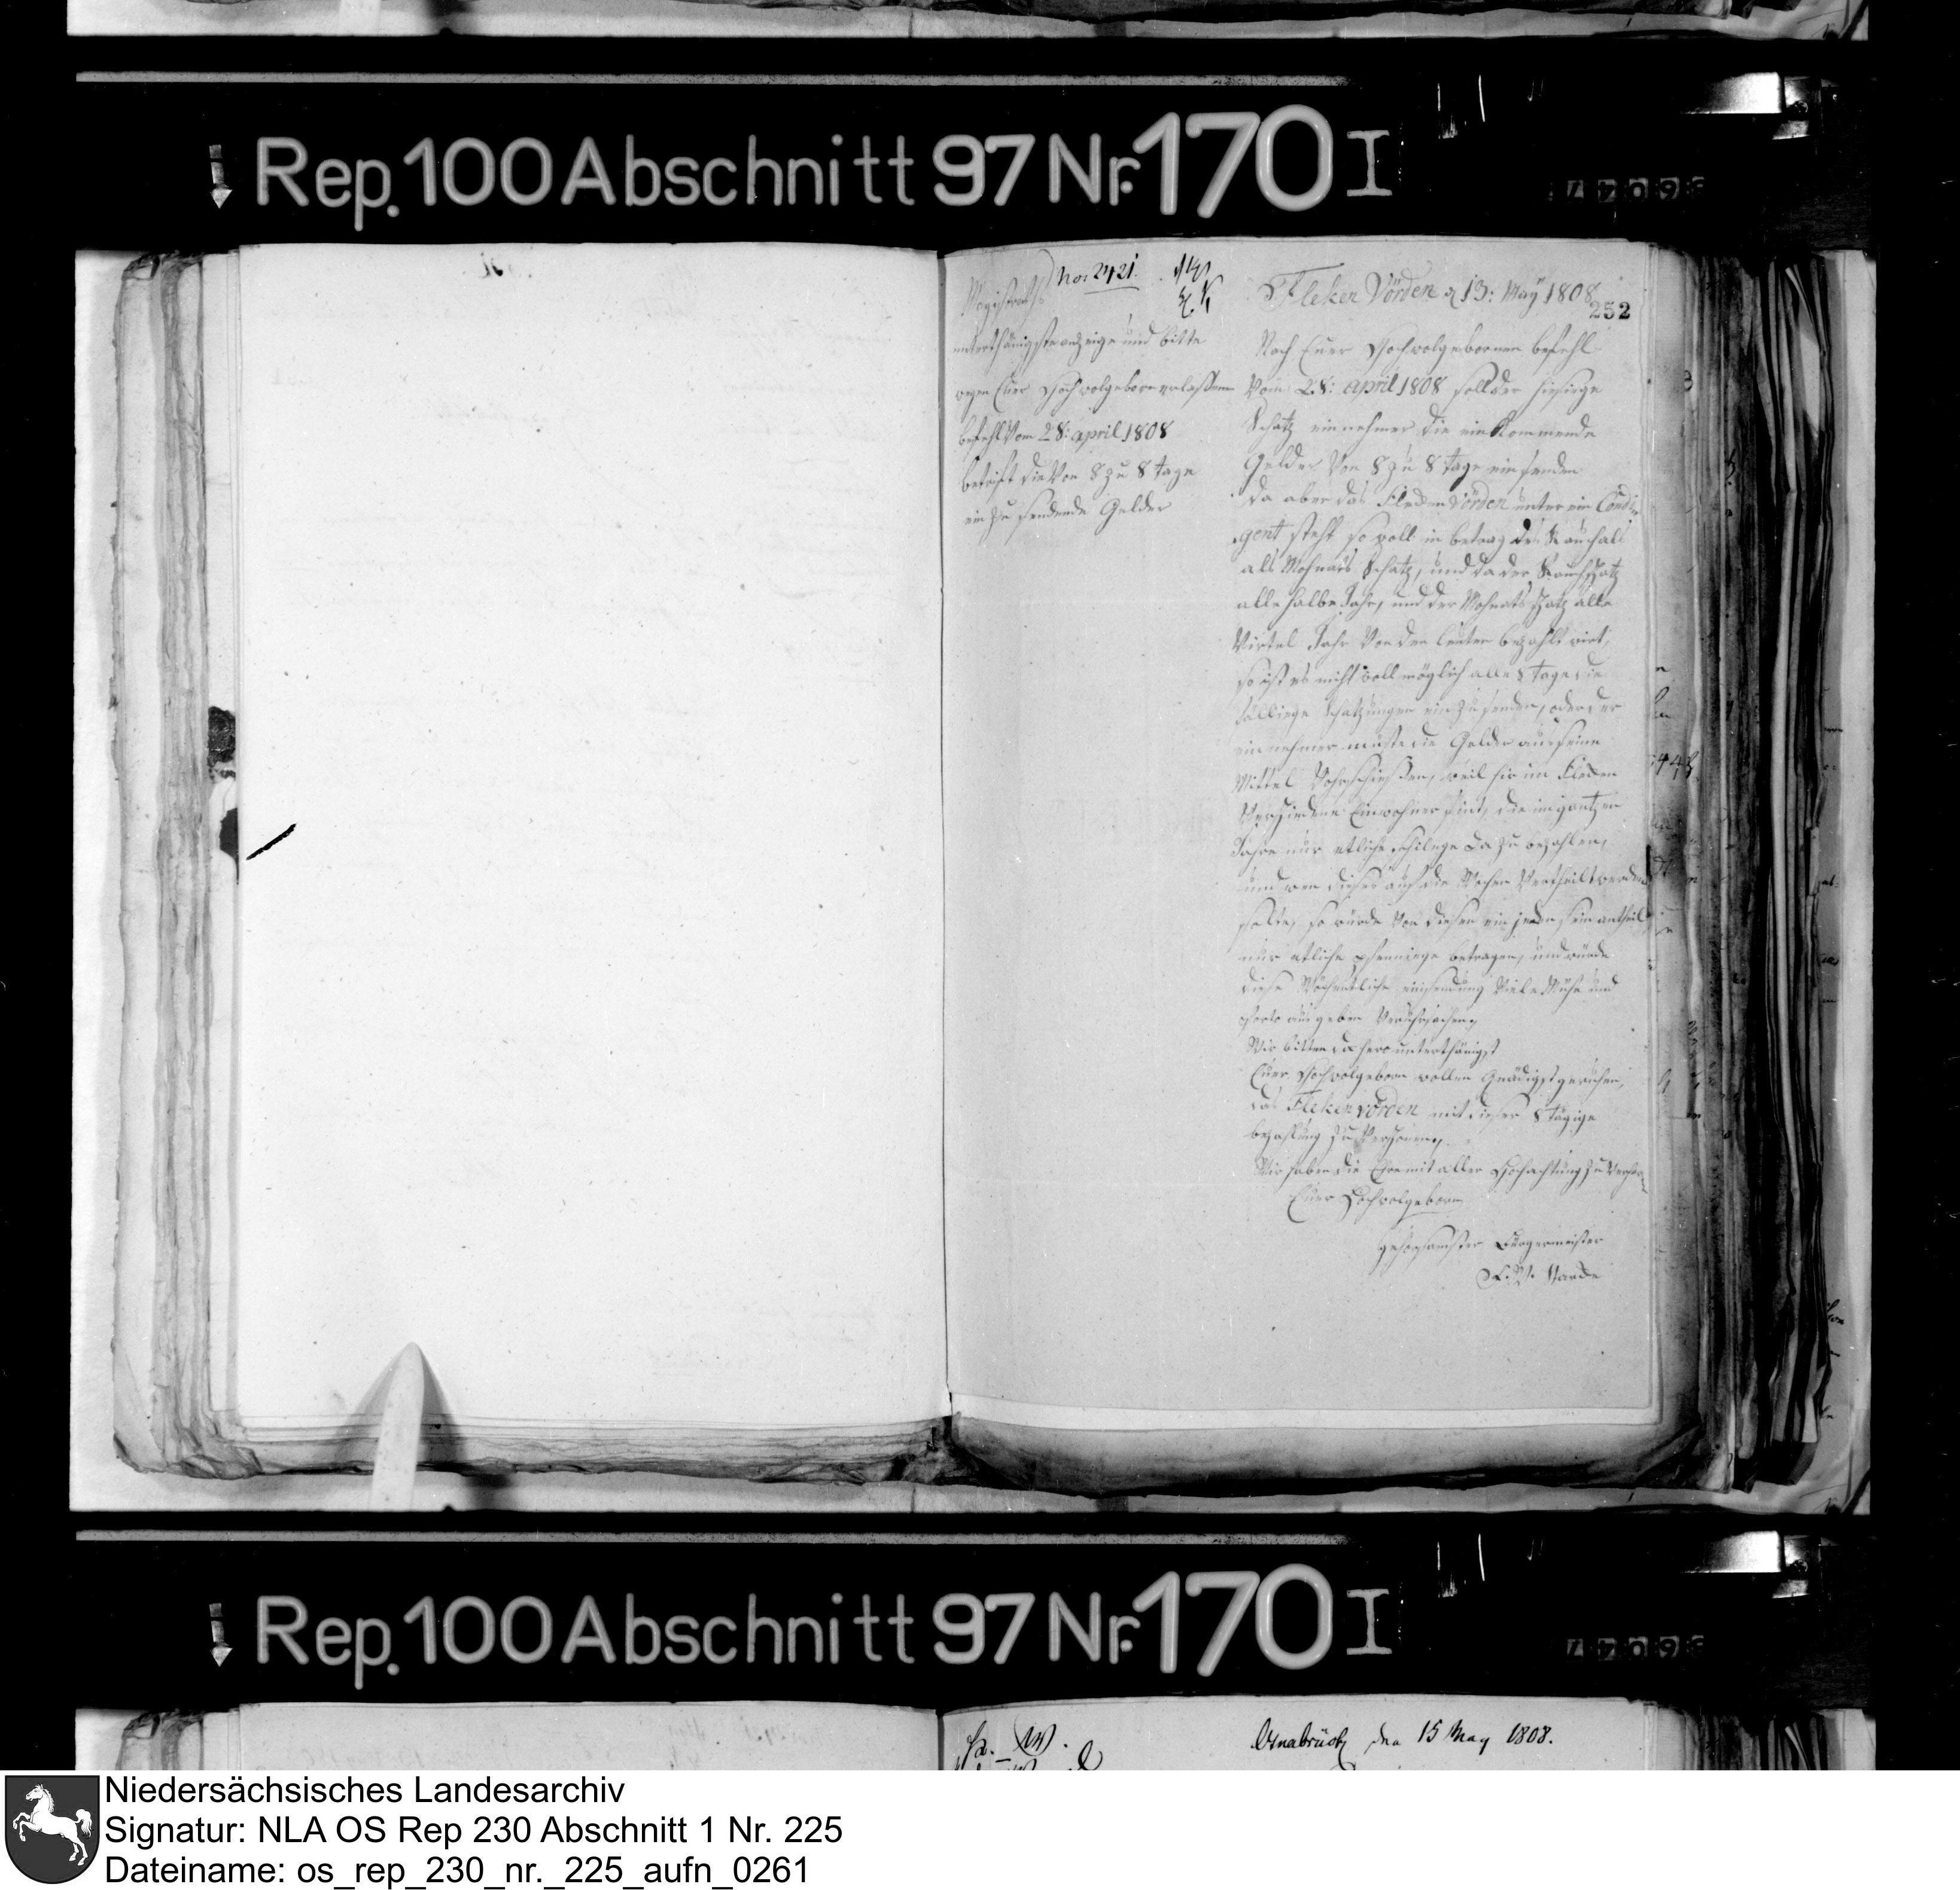 Rep. 100 Abschnitt 97 Nr. 170 I
No: 2421.
Magistrats
unterthänigste anzeige und bitte
wegen Euer Hochwolgeboren erlassenen
befehl Vom 28: april 1808
betrift die Von 8 zu 8 tage
ein zu sendende Gelder
Fleken Vörden d 13: May 1808
252
Nach Euer Hochwolgebornen befehl
Vom 28: april 1808 soll der hiesirge
Schatz einnehmer die ein Kommende
Gelder Von 8 zu 8 tage ein senden
da aber das Flecken Vörden unter ein Condin
gent steht so woll in betrag des Rauchals
als Mohnats Schatz, und da der Rauchschatz
alle halbe Jahr, und der Mohnats schatz alle
Virtel Jahr Von den leuten bezahlt wirt,
so ist es nicht woll möglich alle 8 tage die
fälliege Schatzungen ein zu senden, oder der
einnehmer müste die Gelder aus seine
Mittel Vohrschiessen, weil hir im Flecken
Verschiedene Einwohner sint, die im gantzen
Jahre nur etliche schilege da zu bezahlen,
und wen dieses auf die Wochen Vertheilt werden
solte, so würde Von diesen ein jeden sein antheil
nur etliche pfenniege betragen, und würde
diese Wöchentliche einsendung Viele Mühe und
Porto aus geben Veruhrsachen,
Wir bitten da hero unterthänigst
Euer Hochwolgeborn wollen Gnädigst geruhen,
das Fleken vörden mit dieser 8 tägige
bezahlung zu Verschonen,
Wir haben die Ehre mit aller Hochachtung zu Verharren
Euer Hochwolgeborn
gehorsamster Bürgermeister
Rep. 100 Abschnitt 97 Nr. 170 I
Osnabrück den 15 May 1808.
Niedersächsisches Landesarchiv
Signatur: NLA OS Rep 230 Abschnitt 1 Nr. 225
Dateiname: os_rep_230_nr._225_aufn_0261